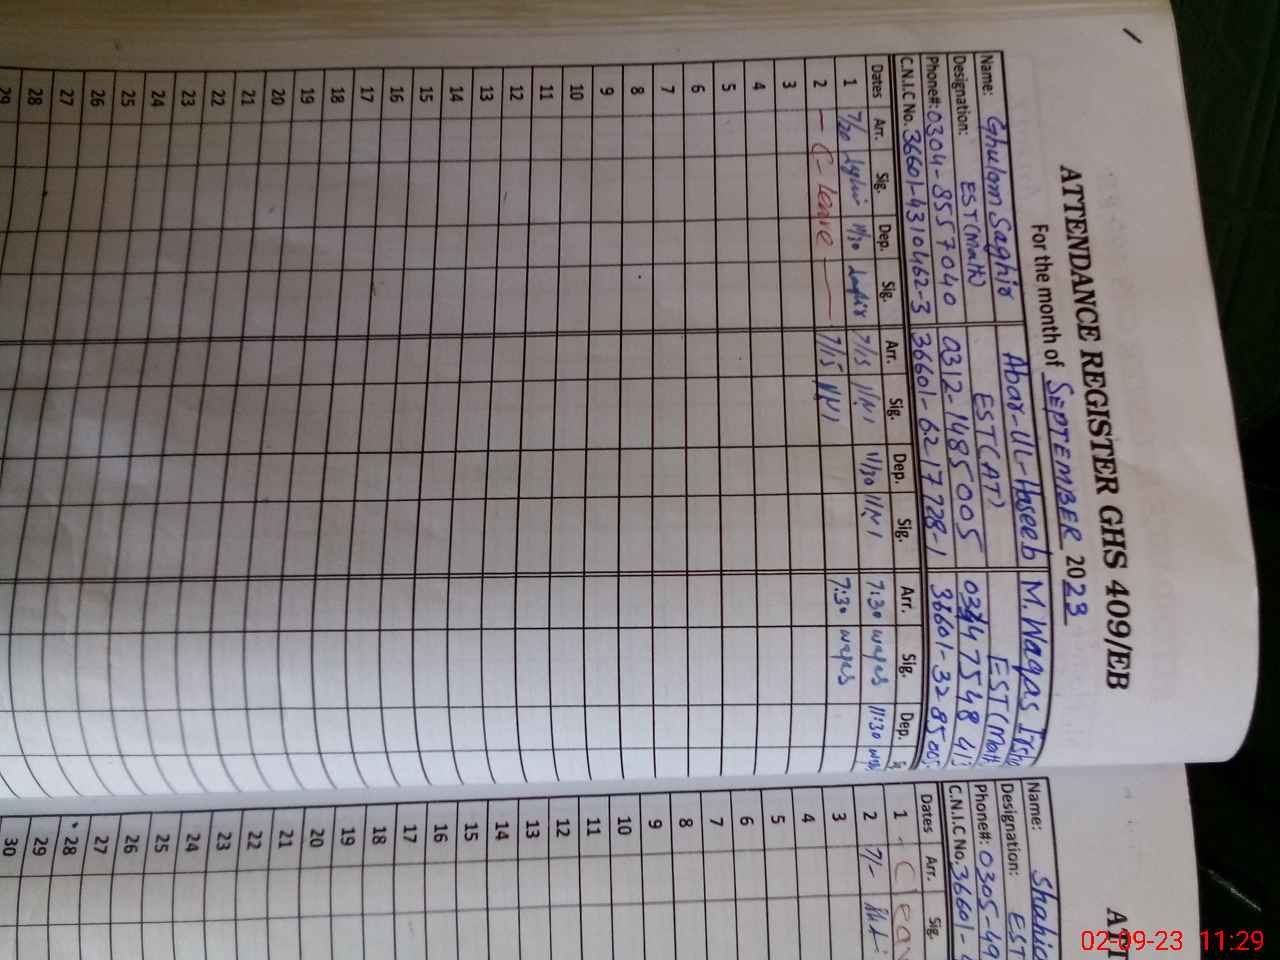 ATTENDANCE REGISTER GHS 409/EB
For the month of SEPTEMBER 2023
Name: Ghulam Saghir Abar-Ul-Haseeb M. Waqas
Designation: EST(Math) EST(AT) EST(Math
Phone#: 0304-8557040 0312-1485005
C.N.I.C No. 36601-4310462-3 36601-6217728-1 36601-3285
Dates Arr. Sig. Dep. Sig. Arr. Sig. Dep. Sig. Arr. Sig. Dep.
1 7/20 11/30 7/15 11/30 7:30 waqas 11:30
2 — C-leave — 7/15 7:30 waqas
3
4
5
6
7
8
9
10
11
12
13
14
15
16
17
18
19
20
21
22
23
24
25
26
27
28
29
Name:
Designation: EST
Phone#: 0305-49
C.N.I.C No. 36601-
Dates Arr. Sig.
1
2 7/-
3
4
5
6
7
8
9
10
11
12
13
14
15
16
17
18
19
20
21
22
23
24
25
26
27
28
29
30
02-09-23 11:29